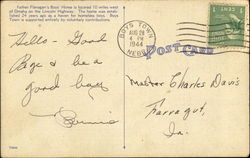 Father Flanagan's Boys' Home is located 10 miles west
of Omaha on the Lincoln Highway. The home was estab-
lished 24 years ago as a haven for homeless boys. Boys
Town is supported entirely by voluntary contributions.
BOYS TOWN
AUG 28
4 PM
1944
NEBR.
POST CARD
Hello - Good
Bye & be a
good boy
Master Charles Davis
Farragut,
Ia.